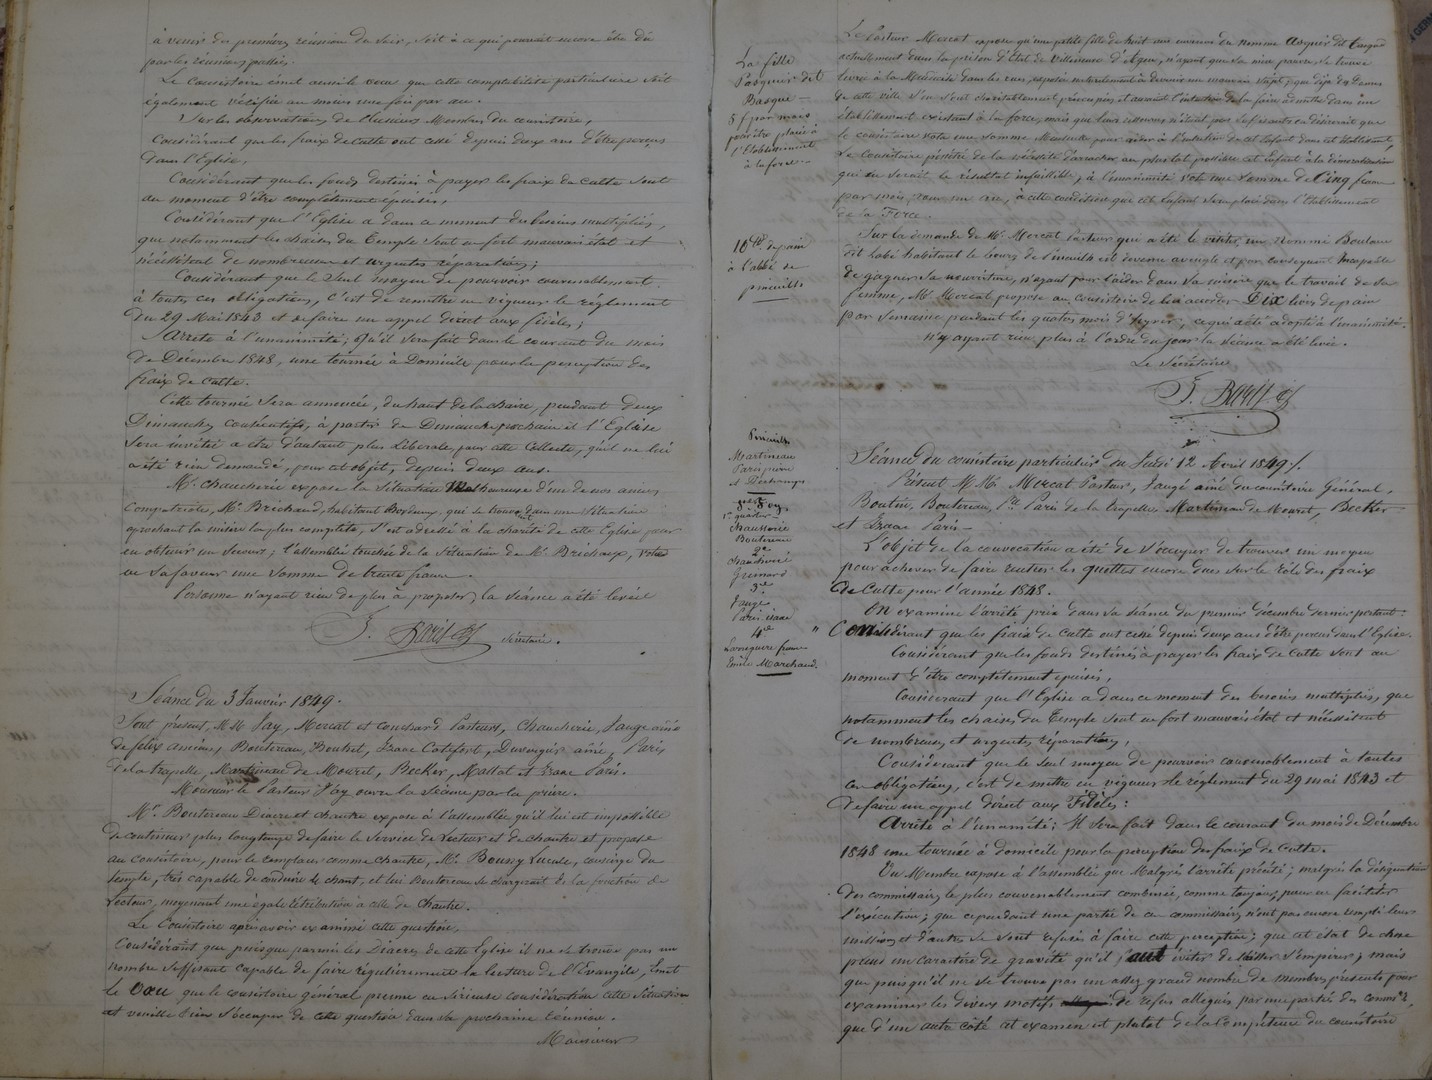 à venir des premières réunions du soir, soit à ce qui pourrait encore être dû
par les réunions passées.
Le Consistoire émet aussi le vœu que cette comptabilité particulière soit
également vérifiée au moins une fois par an.
Sur les observations de plusieurs Membres du consistoire,
Considérant que les fraix de culte ont cessé depuis deux ans d'être perçus
dans l'Eglise,
Considérant que les fonds destinés à payer les fraix de culte sont
au moment d'être complètement épuisés,
Considérant que l'Eglise a dans ce moment des besoins multipliés,
que notamment les chaises du Temple sont en fort mauvais état et
nécessitent de nombreuses et urgentes réparations;
Considérant que le seul moyen de pourvoir convenablement
à toutes ces obligations, c'est de remettre en vigueur le règlement
du 29 Mai 1843 et de faire un appel direct aux fidèles;
Arrête à l'unanimité; qu'il sera fait dans le courant du mois
de Décembre 1848, une tournée à Domicile pour la perception des
fraix de culte.
Cette tournée sera annoncée, du haut de la chaire, pendant deux
Dimanches consécutifs, à partir de Dimanche prochain et l'Eglise
sera invitée a être d'autant plus libérale, pour cette Collecte, qu'il ne lui
a été rien demandé, pour cet objet, depuis deux ans.
Mr. Chaucherie expose la situation Malheureuse d'un de nos anciens
Compatriotes, Mr. Brichaud, habitant Bordeaux, qui se trouvant dans une situation
aprochant la misère la plus complète, s'est adressé à la charité de cette Eglise pour
en obtenir un secours; l'assemblée touchée de la situation de Mr. Brichaux, vote
en sa faveur une somme de trente francs.
Personne n'ayant rien de plus à proposer, la séance a été levée
secrétaire.
Séance du 3 Janvier 1849.
Sont présent, M.M. Jay, Mercat et Couchard Pasteurs, Chaucherie, Jauge ainé
de felix anciens, Bouttereau, Boutret, Isaac Catefort, Duvergier ainé, Paris
de la trapelle, Martineau de Mouret, Becker, Mallat et Isaac Paris.
Monsieur le Pasteur Jay ouvre la Séance par la prière.
Mr. Boutereau Diacre et chantre expose à l'assemblée qu'il lui est impossible
de continuer plus longtemps de faire le service de Lecteur et de chantre et propose
au consistoire, pour le remplacer comme chantre, Mr. Boussy Lucule, concierge du
temple, très capable de conduire le chant, et lui Boutereau se chargerait de la fonction de
Lecteur, moyennant une égale rétribution à celle de Chantre.
Le Consistoire après avoir examiné cette question,
Considérant que puisque parmi les Diacres de cette Eglise il ne se trouve pas un
nombre suffisant capable de faire régulièrement la lecture de l'Evangile, Emet
le vœu que le consistoire général prenne en sérieuse considération cette situation
et veuille bien s'occuper de cette question dans sa prochaine réunion.
Monsieur
La fille
Pasquier dit
Basque —
5 f par mois
pour être placée à
l'Etablissement
à la force. —
Le Pasteur Mercat expose qu'une petite fille de huit ans environ du nommé Asquier dit
actuellement dans la prison d'Etat de Villeneuve d'Agen, n'ayant que sa mère pauvre, se trouve
livrée à la Mendicité dans les rues, exposée naturellement à devenir un mauvais sujet; que déjà des Dames
de cette ville s'en sont charitablement préoccupées et auraient l'intention de la faire admettre dans un
établissement existant à la force, mais que leurs ressources n'étant pas suffisantes on désirerait que
le consistoire vota une somme Mensuelle pour aider à l'entretien de cet Enfant dans cet établissement,
Le Consistoire pénétré de la nécessité d'arracher au plus tôt possible cet enfant à la démoralisation
qui en serait le résultat infaillible, à l'unanimité vote une somme de Cinq francs
par mois, pour un an, à cette condition que cet Enfant sera placé dans l'Etablissement
de la Force.
10 lt. de pain
à l'abbé de
pineuilh
Sur la demande de Mr. Mercat Pasteur qui a été le visiter, un nommé Boulane
dit habé habitant le bourg de Pineuilh est devenu aveugle et par conséquent Incapable
de gagner sa nourriture, n'ayant pour l'aider dans sa misère que le travail de sa
femme, Mr. Mercat propose au Consistoire de lui accorder Dix livres de pain
par semaine pendant les quatre mois d'hyver, ce qui a été adopté à l'unanimité.
N'y ayant rien plus à l'ordre du jour la séance a été levée.
Le Secrétaire
Pineuilh
Martineau
Paris pierre
et Deschamps
1er quartier
Chausserie
Boutereau
2e
Chaucherie
Grenard
3e
Jauge
Paris isaac
4e
Laroquerre frères
Emile Marchand.
Séance du consistoire particulier du Jeudi 12 Avril 1849./.
Présent M.M. Mercat Pasteur, Jauge ainé du consistoire Général,
Boutin, Boutereau, Pre. Paris de la trapelle, Martineau de Mouret, Becker
et Isaac Paris —
L'objet de la convocation a été de s'occuper de trouver un moyen
pour achever de faire rentrer les quottes encore dues sur le rôle des fraix
de Culte pour l'année 1848.
On examine l'arrêté pris dans sa séance du premier décembre dernier portant:
" Considérant que les fraix de culte ont cessé depuis deux ans d'être perçus dans l'Eglise.
Considérant que les fonds destinés à payer les fraix de culte sont au
moment d'être complètement épuisés,
Considérant que l'Eglise a dans ce moment des besoins multipliés, que
notamment les chaises du Temple sont en fort mauvais état et nécessitent
de nombreuses et urgentes réparations,
Considérant que le seul moyen de pourvoir convenablement à toutes
ces obligations, c'est de mettre en vigueur le règlement du 29 mai 1843 et
de faire un appel direct aux Fidèles:
Arrête à l'unanimité; Il sera fait dans le courant du mois de Décembre
1848 une tournée à domicile pour la perception des fraix de Culte.
Un Membre expose à l'assemblée que Malgré l'arrêté précité; malgré la désignation
des commissaires le plus convenablement combinée, comme toujours, pour en faciliter
l'exécution; que cependant une partie de ces commissaires n'ont pas encore rempli leurs
missions et d'autres se sont refusés à faire cette perception; que cet état de chose
prend un caractère de gravité qu'il faut éviter de laisser s'empirer; mais
que puisqu'il ne se trouve pas un assez grand nombre de membres présents pour
examiner les divers motifs de refus allégués par une partie des commres,
que d'un autre côté cet examen est plutôt de la Compétence du consistoire